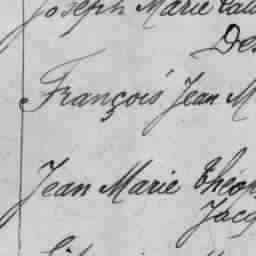 Joseph Marie
François Jean M
Jean Marie Théop
Jacq